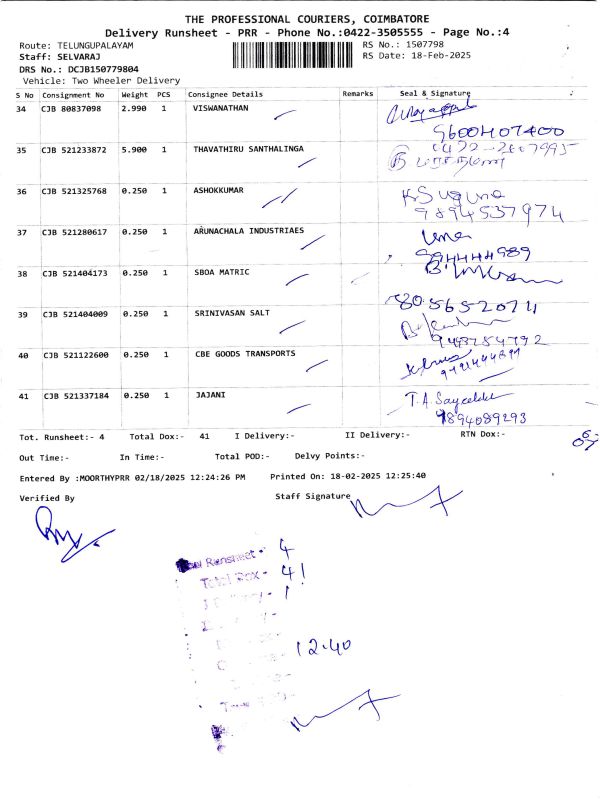 THE PROFESSIONAL COURIERS, COIMBATORE
Delivery Runsheet - PRR - Phone No.:0422-3505555 - Page No.:4
Route: TELUNGUPALAYAM RS No.: 1507798
Staff: SELVARAJ RS Date: 18-Feb-2025
DRS No.: DCJB150779804
Vehicle: Two Wheeler Delivery
S No Consignment No Weight PCS Consignee Details Remarks Seal & Signature
34 CJB 80837098 2.990 1 VISWANATHAN
9600407400
35 CJB 521233872 5.900 1 THAVATHIRU SANTHALINGA
36 CJB 521325768 0.250 1 ASHOKKUMAR K Suguna
9894537974
37 CJB 521280617 0.250 1 ARUNACHALA INDUSTRIAES Uma
38 CJB 521404173 0.250 1 SBOA MATRIC
8056520711
39 CJB 521404009 0.250 1 SRINIVASAN SALT
40 CJB 521122600 0.250 1 CBE GOODS TRANSPORTS
41 CJB 521337184 0.250 1 JAJANI T.A.
9894089293
Tot. Runsheet:- 4 Total Dox:- 41 I Delivery:- II Delivery:- RTN Dox:-
Out Time:- In Time:- Total POD:- Delvy Points:-
Entered By :MOORTHYPRR 02/18/2025 12:24:26 PM Printed On: 18-02-2025 12:25:40
Verified By Staff Signature
Runsheet - 4
Total Dox - 41
12.40